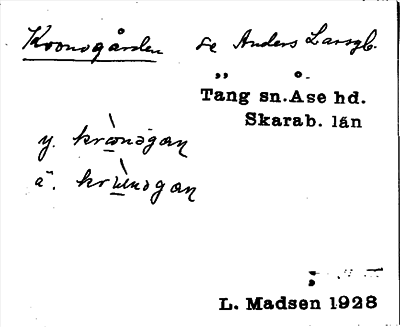 Kronogården se Anders Larsgb.
Täng sn. Åse hd.
Skarab. län
y. kròn̲ogan
ä.
L. Madsen 1928